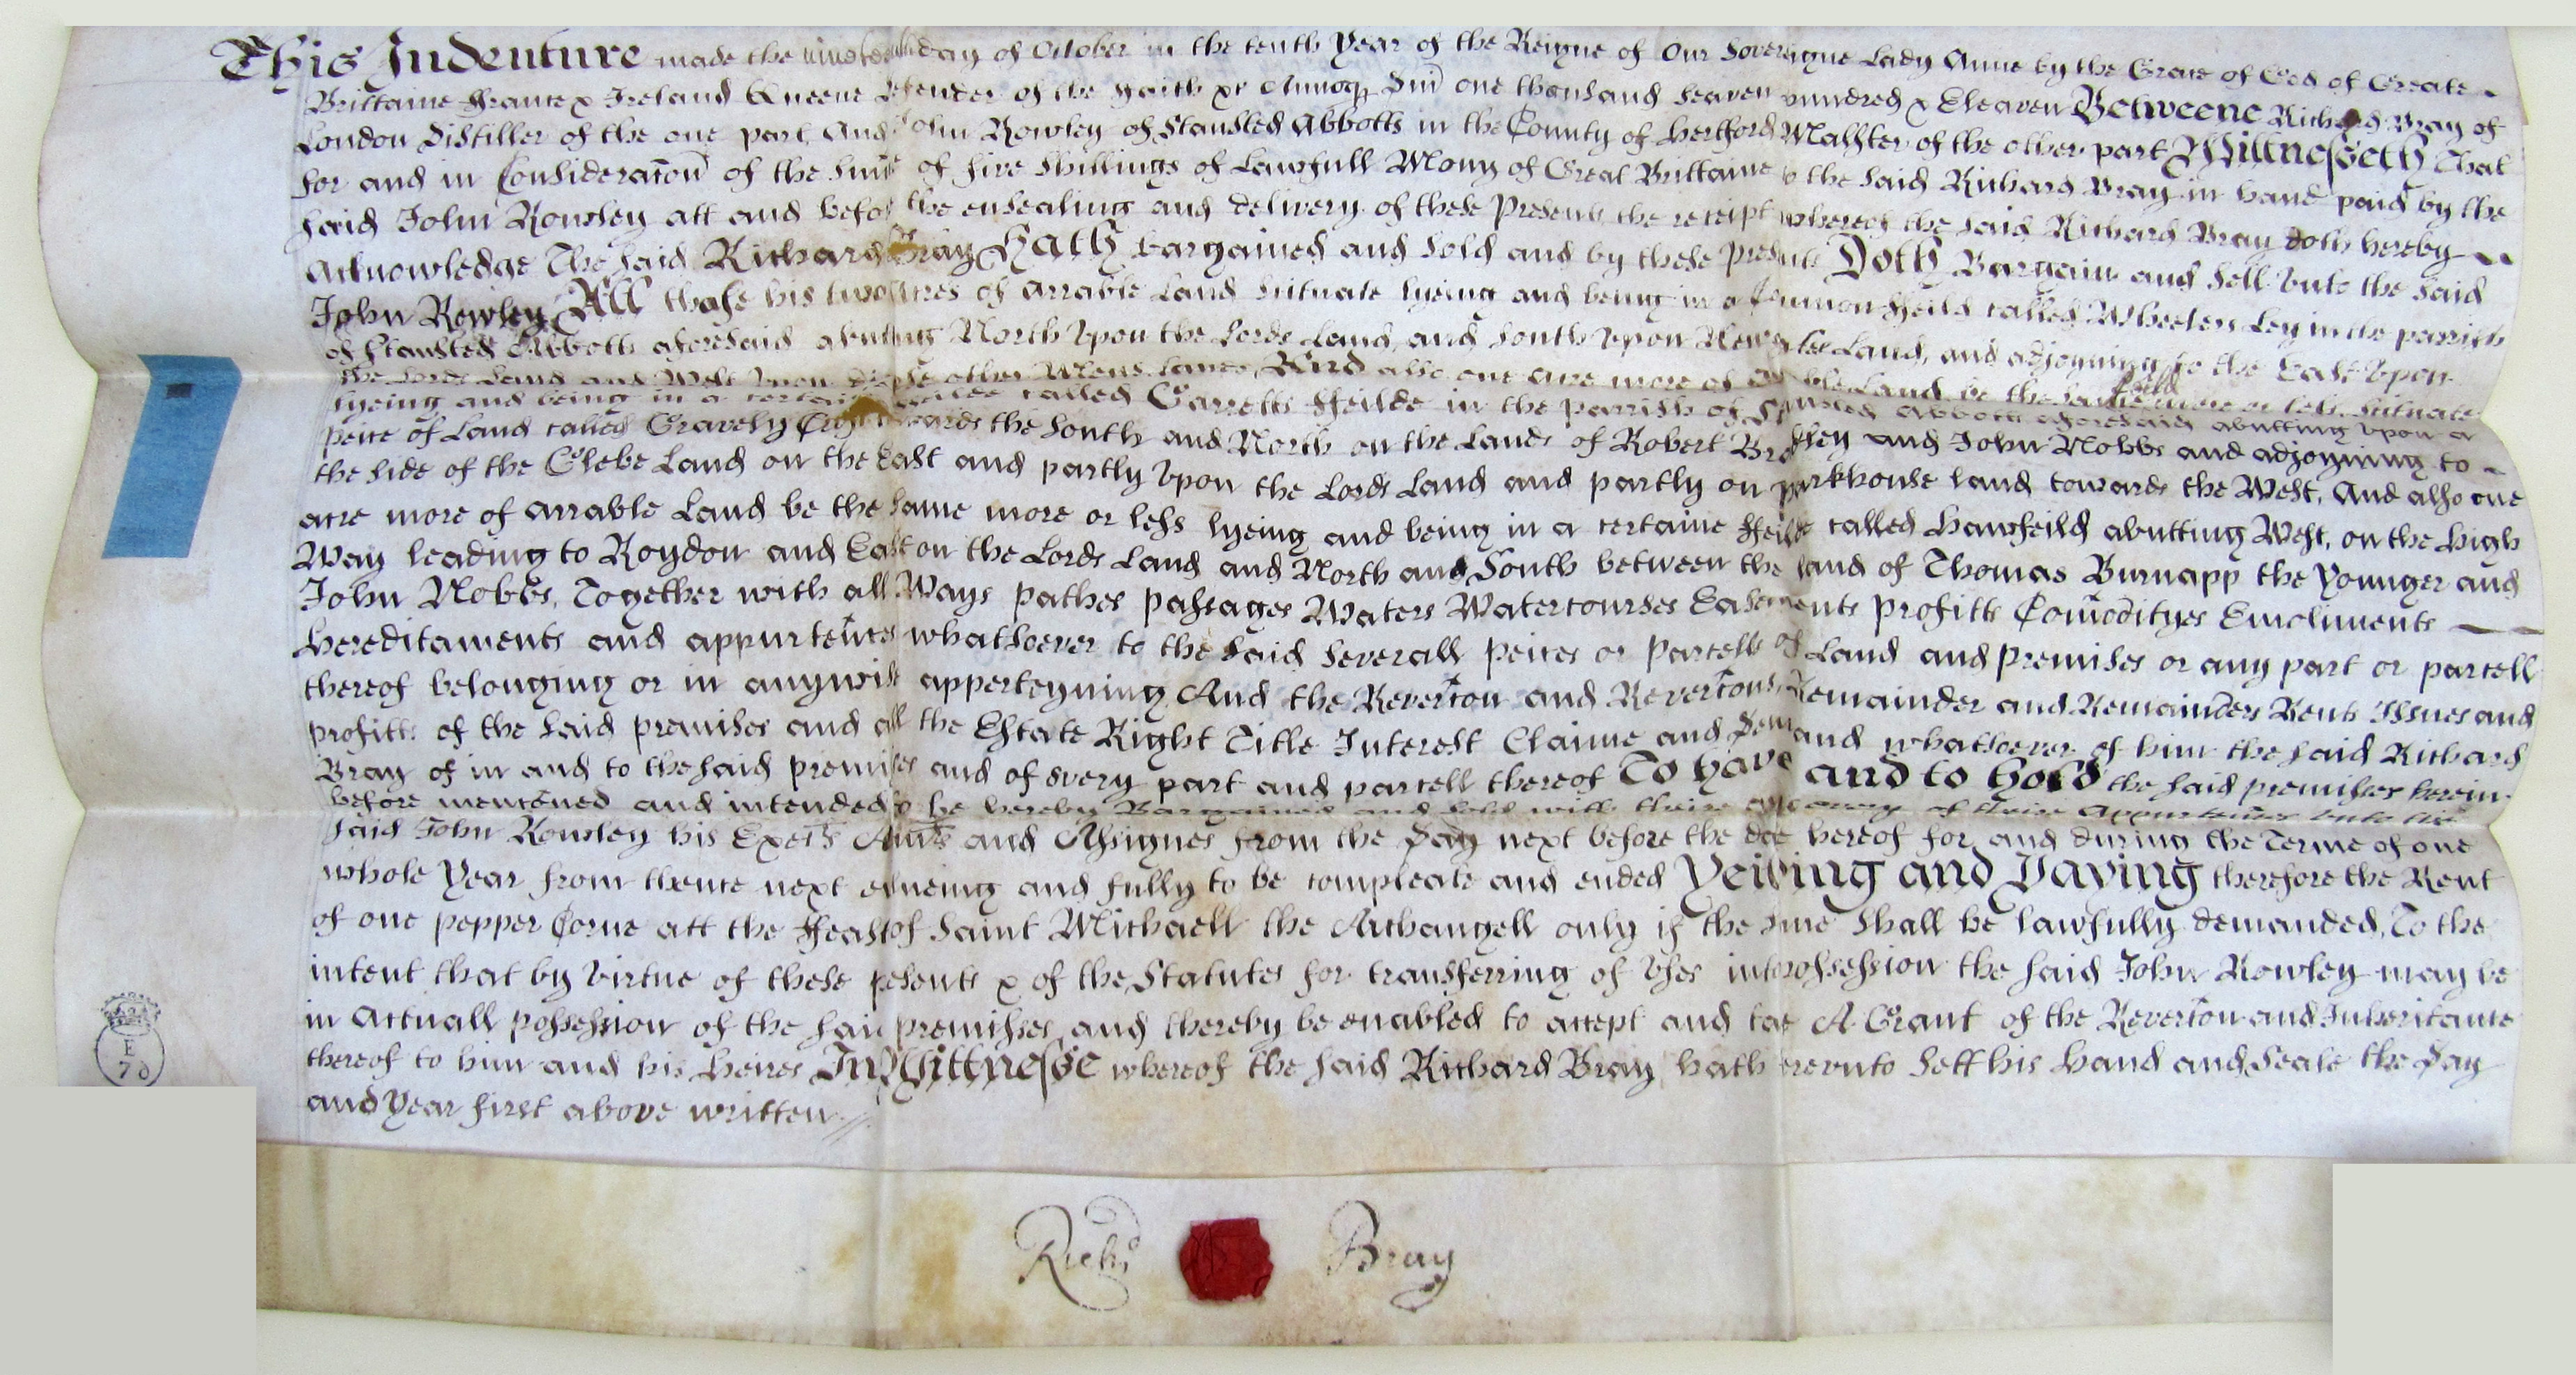 This Indenture made the nineteenth day of October in the tenth Year of the Reigne of Our Soveraigne Lady Anne by the Grace of God of Greate
Brittaine ffrance & Ireland Queene Defender of the Faith &c Annoq Dni one thousand seaven hundred & Eleaven Betweene Richard Bray of
London Distiller of the one part And John Rowley of Stansted Abbotts in the County of Hertford Malster of the other part Wittnesseth That
for and in Consideracon of the Sum of five Shillings of Lawfull Mony of Great Brittaine to the said Richard Bray in hand paid by the
said John Rowley att and before the ensealing and delivery of these Presents the receipt whereof the said Richard Bray doth hereby
Acknowledge The said Richard Bray Hath bargained and sold and by these presents Doth Bargain and sell unto the said
John Rowley All those his two Acres of arrable Land Situate lyeing and being in a Common ffeild called Wheelers Ley in the parrish
of Stansted Abbotts aforesaid abutting North Upon the Lords Land, and South Upon Land, and adjoyning to the East Upon
the Lords Land and West Upon other Mens lands, And also one acre more of Arrable Land be the same more or less Situate
lyeing and being in a certain ffeilde called Garretts ffeilde in the Parrish of Stansted Abbotts aforesaid abutting Upon a
peice of Land called Gravely towards the South and North on the Lands of Robert and John Nobbs and adjoyning to
the side of the Glebe Land on the East and partly Upon the Lords Land and partly on parkhouse land towards the West, And also one
acre more of arrable Land be the same more or less lyeing and being in a certaine ffeild called Hawfeild abutting West, on the High
Way leading to Roydon and East on the Lords Land and North and South between the land of Thomas Burnapp the Younger and
John Nobbs, Together with all Ways pathes passages Waters Watercourses Easements profitts Comodityes Emoliments
hereditaments and appurtenes whatsoever to the said Severall peices or parcells of Land and premises or any part or parcell
thereof belonging or in anywise apperteyning And the Revercon and Revercons Remainder and Remainders Rents Issues and
profitts of the said premises and all the Estate Right Title Interest Claime and Demand whatsoever of him the said Richard
Bray of in and to the said premises and of every part and parcell thereof To have and to hold the said premisses herein
before menconed and intended to be hereby Bargained and sold with theire and every of theire Appurtences unto the
said John Rowley his Exe̅rs Adm̅rs and Assignes from the Day next before the date hereof for and during the Terme of one
whole Year from thence next ensueing and fully to be compleate and ended Yeilding and Paying therefore the Rent
of one pepper Corne att the ffeast of Saint Michaell the Archangell only if the same shall be lawfully demanded, To the
intent that by Virtue of these presents & of the Statutes for transferring of Uses into possession the said John Rowley may be
in Actuall possession of the said premisses, and thereby be enabled to accept and take A Grant of the Revercon and Inheritance
thereof to him and his Heires In Wittnesse whereof the said Richard Bray hath hereunto Sett his Hand and Seale the Day
and Year first above written
Richd Bray
E
70